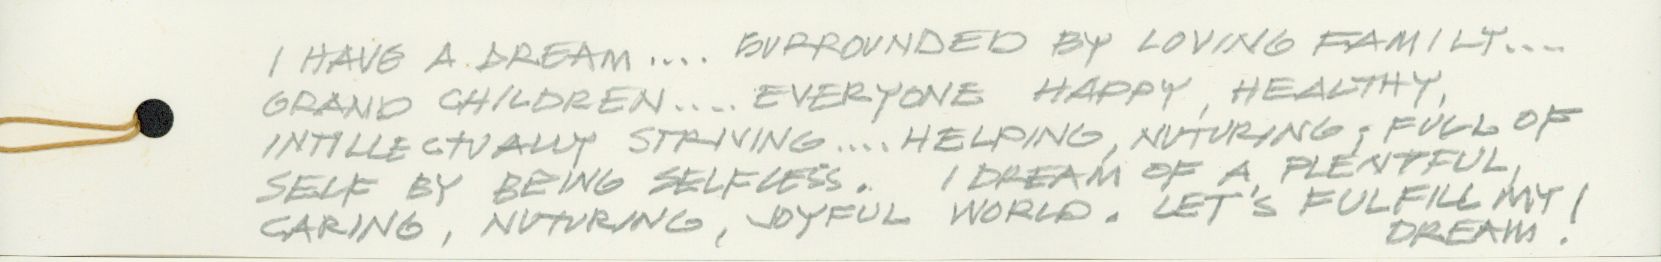 I HAVE A DREAM.... SURROUNDED BY LOVING FAMILY....
GRAND CHILDREN.... EVERYONE HAPPY, HEALTHY,
INTILLECTUALLY STRIVING.... HELPING, NUTURING, FULL OF
SELF BY BEING SELFLESS. I DREAM OF A PLENTFUL,
CARING, NUTURING, JOYFUL WORLD. LET'S FULFILL MY
DREAM!